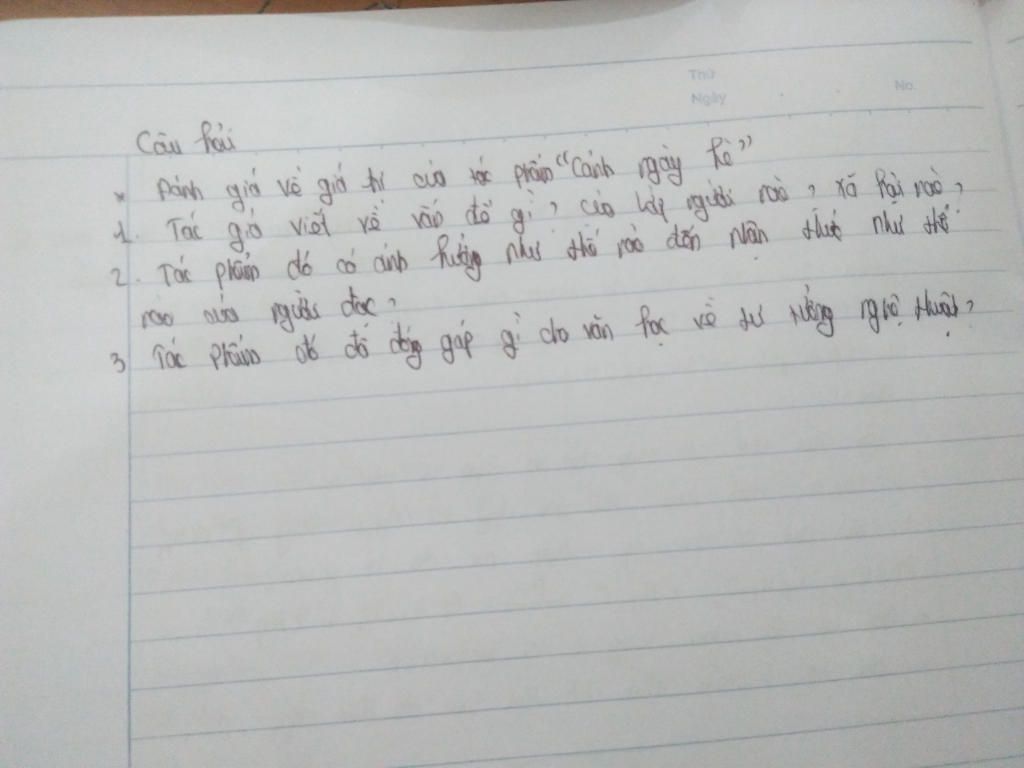 Thứ
Ngày
No.
Câu hỏi
* Đánh giá về giá trị của tác phẩm "Cảnh ngày hè"
1. Tác giả viết về vấn đề gì, của lớp người nào, xã hội nào?
2. Tác phẩm đó có ảnh hưởng như thế nào đến nhận thức như thế
nào của người đọc?
3 Tác phẩm đó đã đóng góp gì cho văn học về tư tưởng nghệ thuật?